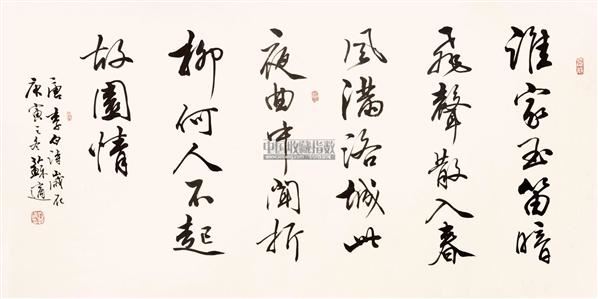 誰家玉笛暗
飛聲散入春
風滿洛城此
夜曲中聞折
柳何人不起
故園情
唐李白詩歲在
庚寅之冬蘇適
中国收藏指数